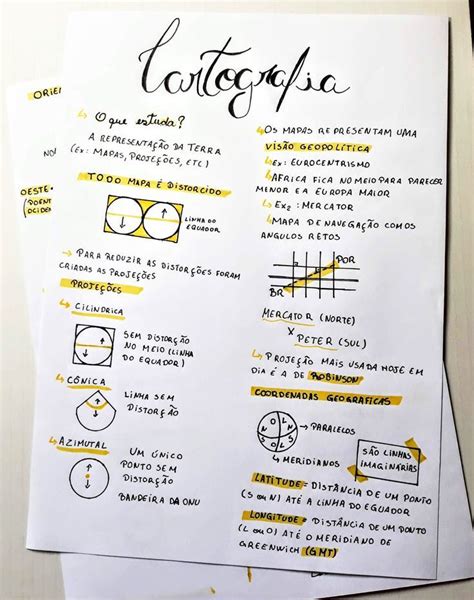 Cartografia
↳ O que estuda?
A REPRESENTAÇÃO DA TERRA
(Ex: MAPAS, PROJEÇÕES, ETC)
TODO MAPA É DISTORCIDO
LINHA DO
EQUADOR
→ PARA REDUZIR AS DISTORÇÕES FORAM
CRIADAS AS PROJEÇÕES
PROJEÇÕES
↳ CILÍNDRICA
SEM DISTORÇÃO
NO MEIO (LINHA
DO EQUADOR)
↳ CÔNICA
LINHA SEM
DISTORÇÃO
↳ AZIMUTAL
UM ÚNICO
PONTO SEM
DISTORÇÃO
BANDEIRA DA ONU
↳ OS MAPAS REPRESENTAM UMA
VISÃO GEOPOLÍTICA
↳ Ex: EUROCENTRISMO
↳ AFRICA FICA NO MEIO PARA PARECER
MENOR E A EUROPA MAIOR
↳ Ex2: MERCATOR
↳ MAPA DE NAVEGAÇÃO COM OS
ANGULOS RETOS
POR
BR
MERCATOR (NORTE)
X
PETER (SUL)
↳ PROJEÇÃO MAIS USADA HOJE EM
DIA É A DE ROBINSON
COORDENADAS GEOGRAFICAS
→ PARALELOS
↳ MERIDIANOS
SÃO LINHAS
IMAGINÁRIAS
LATITUDE = DISTÂNCIA DE UM PONTO
(S ou N) ATÉ A LINHA DO EQUADOR
LONGITUDE = DISTÂNCIA DE UM PONTO
(L ou O) ATÉ O MERIDIANO DE
GREENWICH (GMT)
ORIE
NO
OESTE